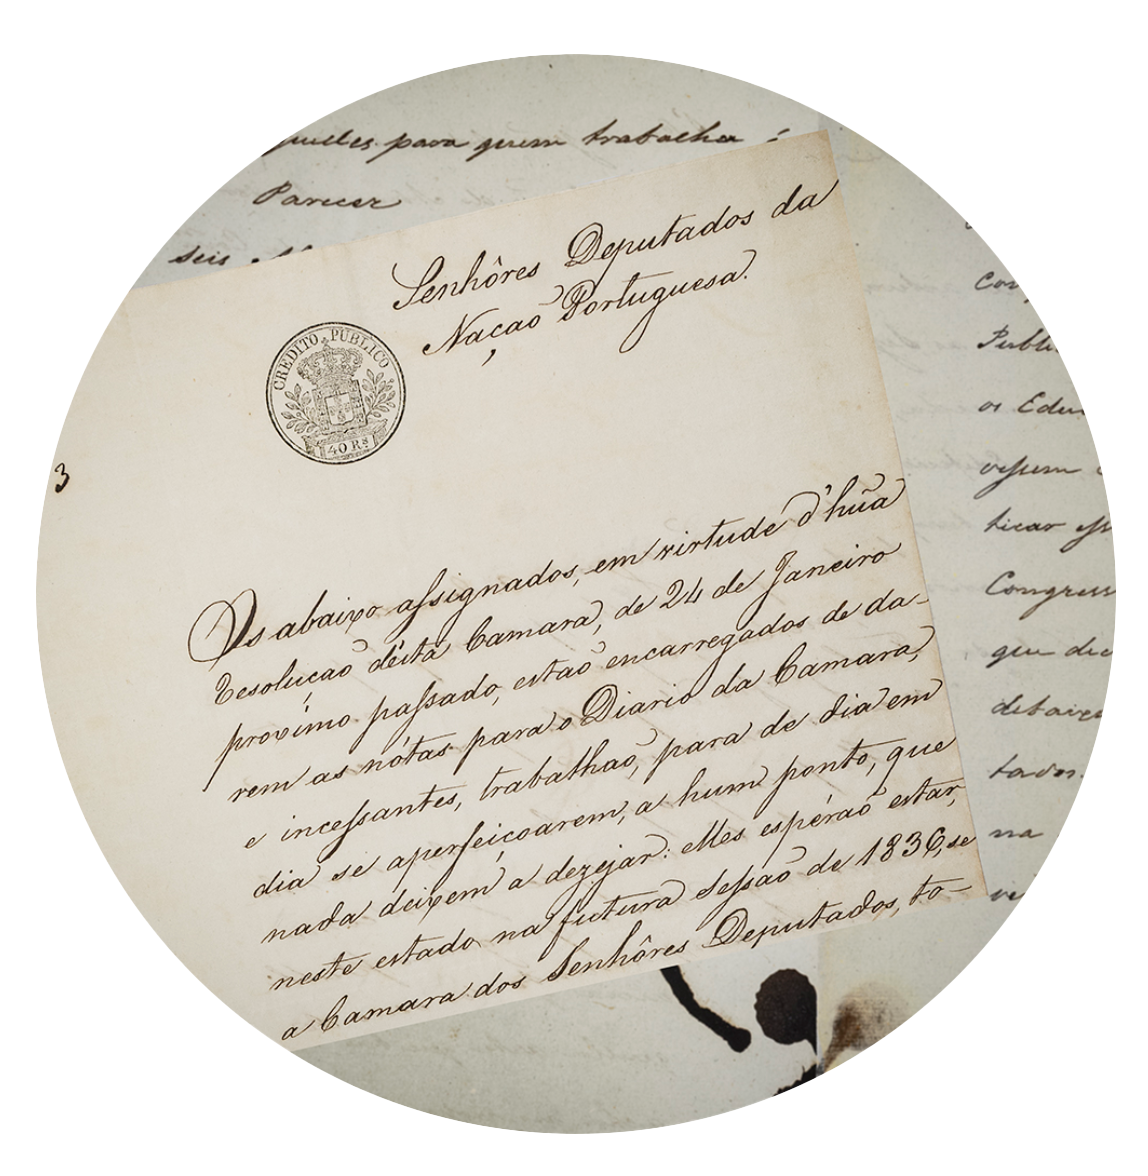 para quem trabalha é
Parecer
seis
Senhôres Deputados da
Nação Portuguesa.
CREDITO PUBLICO
40 Rs
3
Os abaixo assignados, em virtude d'hũa
resolução désta Camara, de 24 de Janeiro
proximo passado, estaõ encarregados de da-
rem as nótas para o Diario da Camara,
e incessantes, trabalhaõ, para de dia em
dia se aperfeiçoarem, a hum ponto, que
nada deixem a dezejar: Elles espéraõ estar,
neste estado na futura Sessaõ de 1836, se
a Camara dos Senhôres Deputados, to-
Con
Publi
os Edu
vessem
ticar ess
Congress
que dec
debaixo
tados.
na